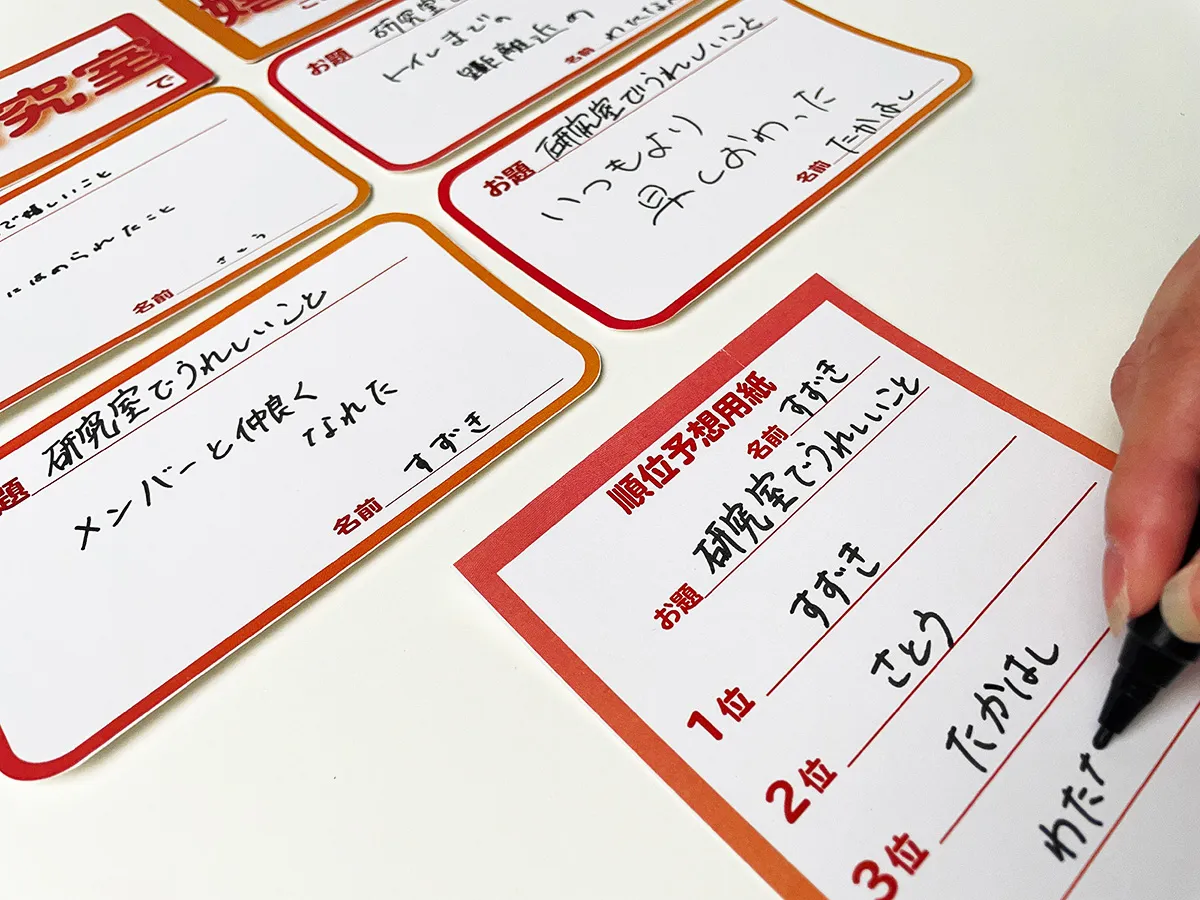 究室
で
お題 研究室で
トイレまでの
距離近め
名前 わたなべ
お題 研究室でうれしいこと
いつもより
早しおわった
名前 たかはし
で嬉しいこと
にほめられたこと
名前 さとう
題 研究室でうれしいこと
メンバーと仲良く
なれた
名前 すずき
順位予想用紙
名前 すずき
お題 研究室でうれしいこと
1位 すずき
2位 さとう
3位 たかはし
わたな